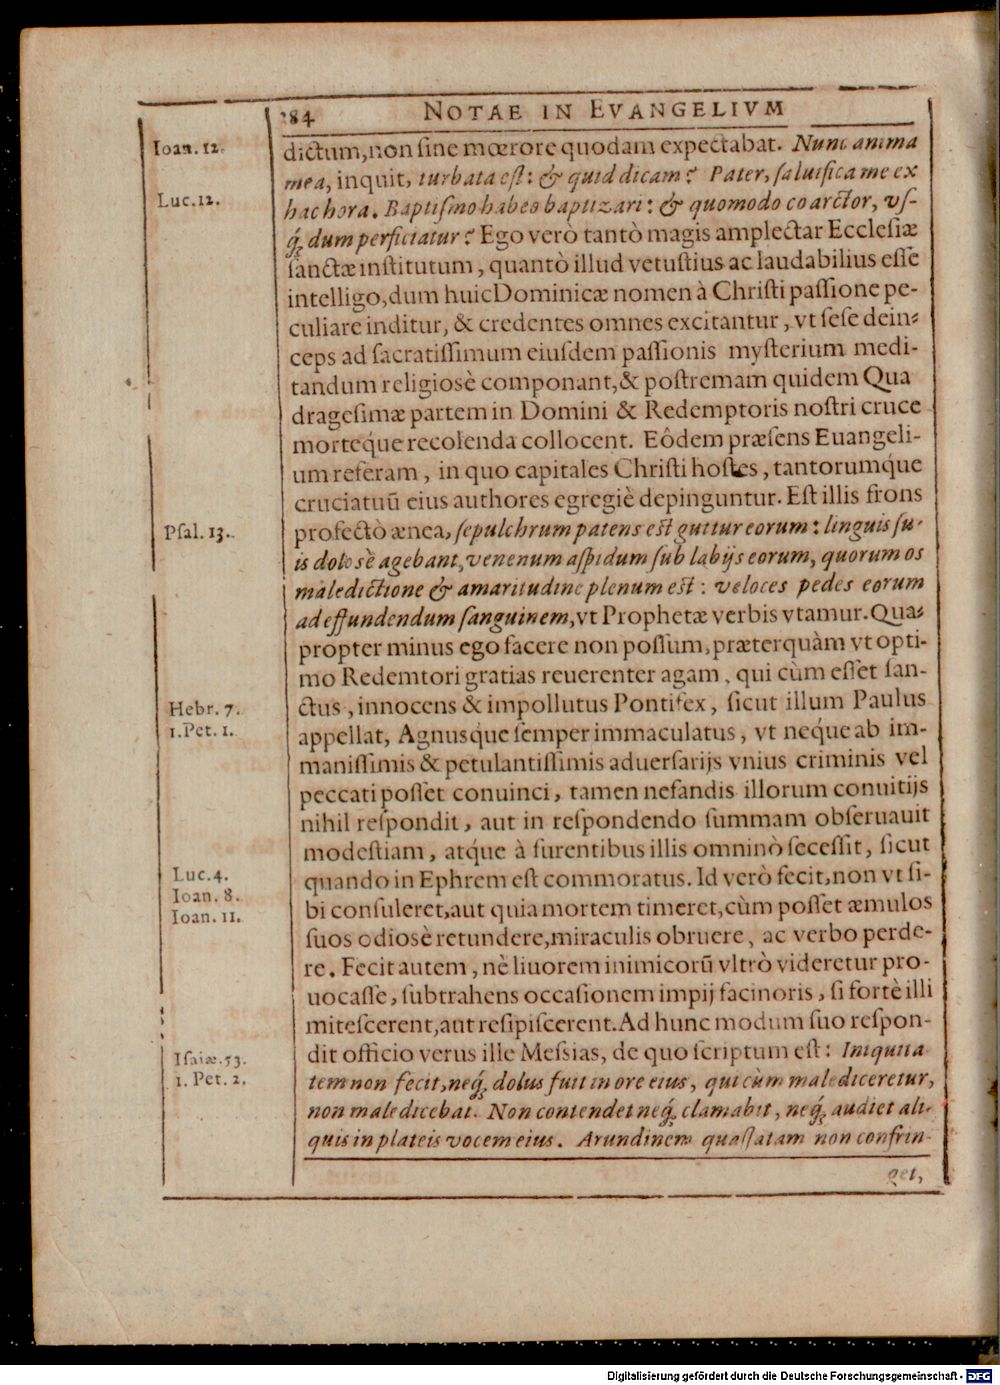 284 NOTAE IN EVANGELIVM
Ioan. 12.
dictum, non sine mœrore quodam expectabat. Nunc anima
mea, inquit, turbata est: & quid dicam? Pater, saluifica me ex
Luc. 12.
hac hora. Baptismo habeo baptizari: & quomodo coarctor, vs-
q́; dum perficiatur? Ego verò tantò magis amplectar Ecclesiæ
sanctæ institutum, quantò illud vetustius ac laudabilius esse
intelligo, dum huic Dominicæ nomen à Christi passione pe-
culiare inditur, & credentes omnes excitantur, vt sese dein-
ceps ad sacratissimum eiusdem passionis mysterium medi-
tandum religiosè componant, & postremam quidem Qua
dragesimæ partem in Domini & Redemptoris nostri cruce
morteq́ue recolenda collocent. Eôdem præsens Euangeli-
um referam, in quo capitales Christi hostes, tantorumq́ue
cruciatuũ eius authores egregiè depinguntur. Est illis frons
Psal. 13.
profectò ænea, sepulchrum patens est guttur eorum: linguis su-
is dolosè agebant, venenum aspidum sub labijs eorum, quorum os
maledictione & amaritudine plenum est: veloces pedes eorum
ad effundendum sanguinem, vt Prophetæ verbis vtamur. Qua-
propter minus ego facere non possum, præterquàm vt opti-
mo Redemtori gratias reuerenter agam, qui cùm esset san-
Hebr. 7.
ctus, innocens & impollutus Pontifex, sicut illum Paulus
1. Pet. 1.
appellat, Agnusq́ue semper immaculatus, vt neq́ue ab im-
manissimis & petulantissimis aduersarijs vnius criminis vel
peccati posset conuinci, tamen nefandis illorum conuitijs
nihil respondit, aut in respondendo summam obseruauit
modestiam, atq́ue à furentibus illis omninò secessit, sicut
Luc. 4.
quando in Ephrem est commoratus. Id verò fecit, non vt si-
Ioan. 8.
bi consuleret, aut quia mortem timeret, cùm posset æmulos
Ioan. 11.
suos odiosè retundere, miraculis obruere, ac verbo perde-
re. Fecit autem, nè liuorem inimicorũ vltrò videretur pro-
uocasse, subtrahens occasionem impij facinoris, si fortè illi
mitescerent, aut resipiscerent. Ad hunc modum suo respon-
dit officio verus ille Messias, de quo scriptum est: Iniquita
Isaiæ. 53.
1. Pet. 2.
tem non fecit, neq́; dolus fuit in ore eius, qui cùm malediceretur,
non maledicebat. Non contendet neq́; clamabit, neq́; audiet ali-
quis in plateis vocem eius. Arundinem quassatam non confrin-
get,
Digitalisierung gefördert durch die Deutsche Forschungsgemeinschaft - DFG